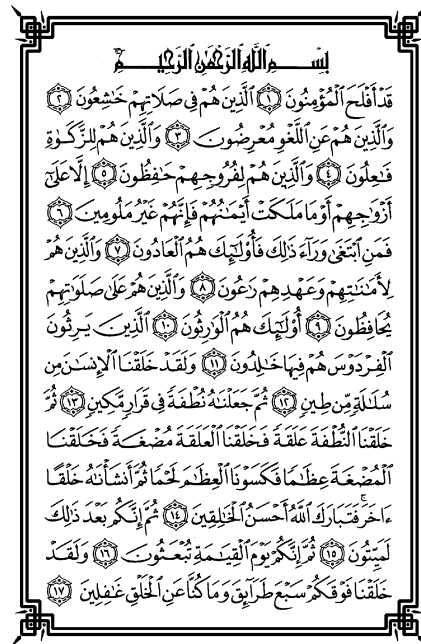 بِسْمِ اللَّهِ الرَّحْمَٰنِ الرَّحِيمِ
قَدْ أَفْلَحَ الْمُؤْمِنُونَ ١ الَّذِينَ هُمْ فِي صَلَاتِهِمْ خَٰشِعُونَ ٢
وَالَّذِينَ هُمْ عَنِ اللَّغْوِ مُعْرِضُونَ ٣ وَالَّذِينَ هُمْ لِلزَّكَوٰةِ
فَٰعِلُونَ ٤ وَالَّذِينَ هُمْ لِفُرُوجِهِمْ حَٰفِظُونَ ٥ إِلَّا عَلَىٰ
أَزْوَٰجِهِمْ أَوْ مَا مَلَكَتْ أَيْمَٰنُهُمْ فَإِنَّهُمْ غَيْرُ مَلُومِينَ ٦
فَمَنِ ابْتَغَىٰ وَرَآءَ ذَٰلِكَ فَأُولَٰٓئِكَ هُمُ الْعَادُونَ ٧ وَالَّذِينَ هُمْ
لِأَمَٰنَٰتِهِمْ وَعَهْدِهِمْ رَٰعُونَ ٨ وَالَّذِينَ هُمْ عَلَىٰ صَلَوَٰتِهِمْ
يُحَافِظُونَ ٩ أُولَٰٓئِكَ هُمُ الْوَٰرِثُونَ ١٠ الَّذِينَ يَرِثُونَ
الْفِرْدَوْسَ هُمْ فِيهَا خَٰلِدُونَ ١١ وَلَقَدْ خَلَقْنَا الْإِنسَٰنَ مِن
سُلَٰلَةٍ مِّن طِينٍ ١٢ ثُمَّ جَعَلْنَٰهُ نُطْفَةً فِي قَرَارٍ مَّكِينٍ ١٣ ثُمَّ
خَلَقْنَا النُّطْفَةَ عَلَقَةً فَخَلَقْنَا الْعَلَقَةَ مُضْغَةً فَخَلَقْنَا
الْمُضْغَةَ عِظَٰمًا فَكَسَوْنَا الْعِظَٰمَ لَحْمًا ثُمَّ أَنشَأْنَٰهُ خَلْقًا
ءَاخَرَ ۚ فَتَبَارَكَ اللَّهُ أَحْسَنُ الْخَٰلِقِينَ ١٤ ثُمَّ إِنَّكُم بَعْدَ ذَٰلِكَ
لَمَيِّتُونَ ١٥ ثُمَّ إِنَّكُمْ يَوْمَ الْقِيَٰمَةِ تُبْعَثُونَ ١٦ وَلَقَدْ
خَلَقْنَا فَوْقَكُمْ سَبْعَ طَرَآئِقَ وَمَا كُنَّا عَنِ الْخَلْقِ غَٰفِلِينَ ١٧